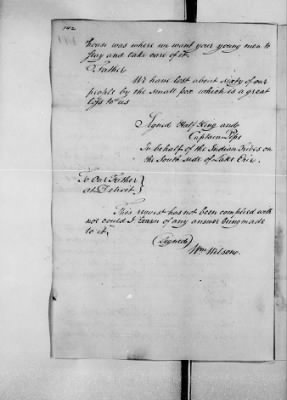 142
house was where we want your young men to
stay and take care of it.
Father
We have lost about sixty of our
people by the small pox which is a great
loss to us
Signed Half King and
Captain Pipe
In behalf of the Indian Tribes on
the South side of Lake Erie.
To Our Father
at Detroit.
This request has not been complied with
nor could I learn of any answer being made
to it,
(Signed)
Wm Wilson.